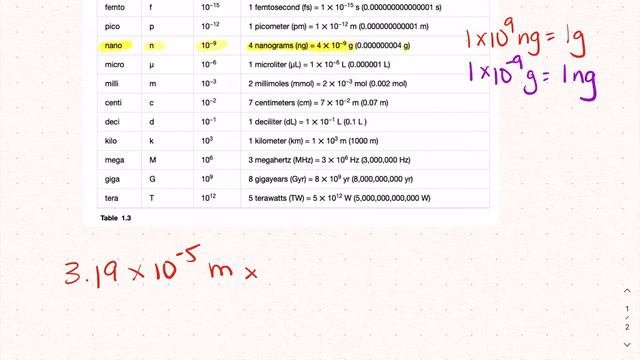 femto f 10⁻¹⁵ 1 femtosecond (fs) = 1 × 10⁻¹⁵ s (0.000000000000001 s)
pico p 10⁻¹² 1 picometer (pm) = 1 × 10⁻¹² m (0.000000000001 m)
nano n 10⁻⁹ 4 nanograms (ng) = 4 × 10⁻⁹ g (0.000000004 g)
micro µ 10⁻⁶ 1 microliter (µL) = 1 × 10⁻⁶ L (0.000001 L)
milli m 10⁻³ 2 millimoles (mmol) = 2 × 10⁻³ mol (0.002 mol)
centi c 10⁻² 7 centimeters (cm) = 7 × 10⁻² m (0.07 m)
deci d 10⁻¹ 1 deciliter (dL) = 1 × 10⁻¹ L (0.1 L )
kilo k 10³ 1 kilometer (km) = 1 × 10³ m (1000 m)
mega M 10⁶ 3 megahertz (MHz) = 3 × 10⁶ Hz (3,000,000 Hz)
giga G 10⁹ 8 gigayears (Gyr) = 8 × 10⁹ yr (8,000,000,000 yr)
tera T 10¹² 5 terawatts (TW) = 5 × 10¹² W (5,000,000,000,000 W)
Table 1.3
1 × 10⁹ ng = 1g
1 × 10⁻⁹ g = 1ng
3.19 × 10⁻⁵ m ×
1
/
2